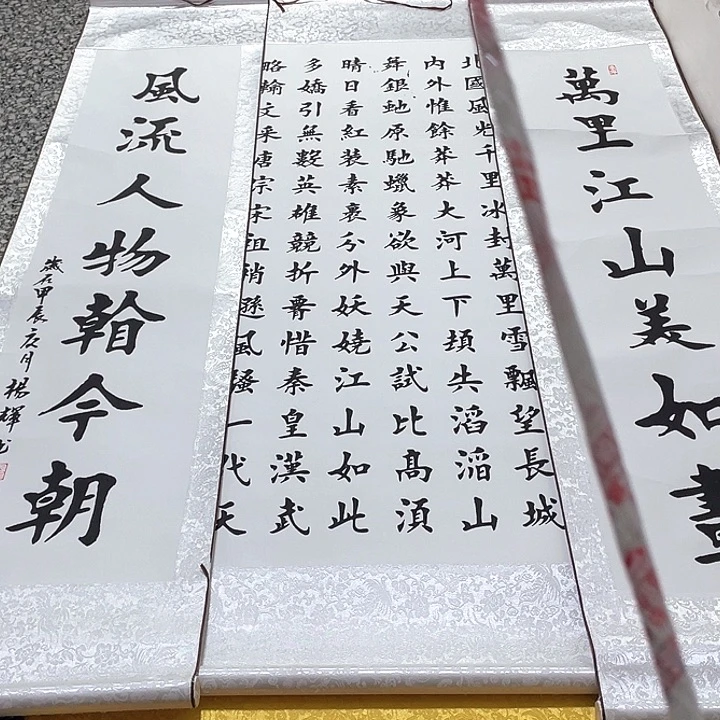 萬里江山美如畫
北國風光千里冰封萬里雪飄望長城
內外惟餘莽莽大河上下頓失滔滔山
舞銀蛇原馳蠟象欲與天公試比高須
晴日看紅裝素裹分外妖嬈江山如此
多嬌引無數英雄競折腰惜秦皇漢武
略輸文采唐宗宋祖稍遜風騷一代天
風流人物看今朝
歲在甲辰夏月楊輝书